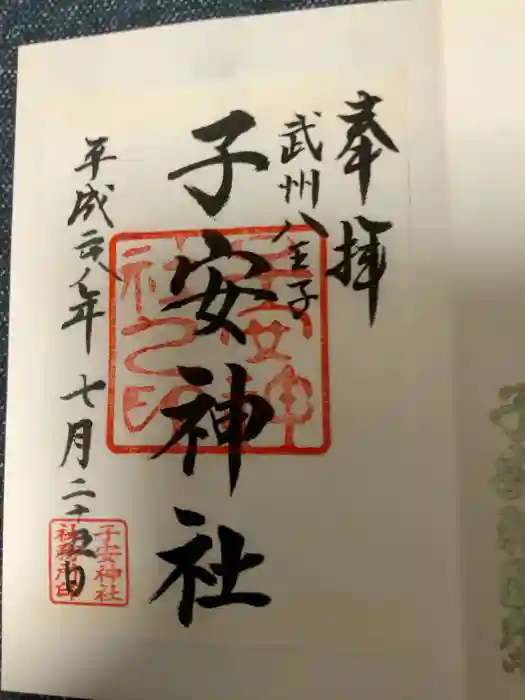 奉拝
武州八王子
子安神社
平成二八年七月二十五日
子安神社之印
子安神社
社務所印